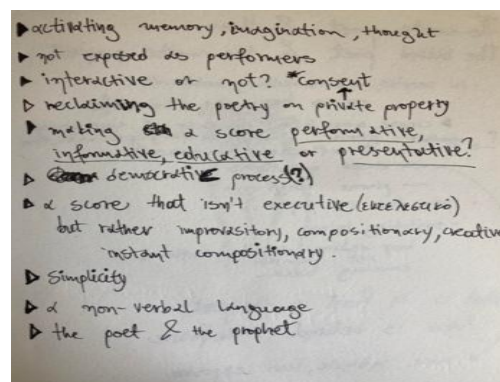 ▶ activating memory, imagination, thought
▶ not exposed as performers
▶ interactive or not? *consent
▷ reclaiming the poetry on private property
▶ making a score performative,
informative, educative or presentative?
▷ democratic process(?)
▷ a score that isn't executive (εκτελεστικό)
but rather improvisatory, compositionary, creative
instant compositionary.
▷ Simplicity
▷ a non-verbal language
▷ the poet & the prophet